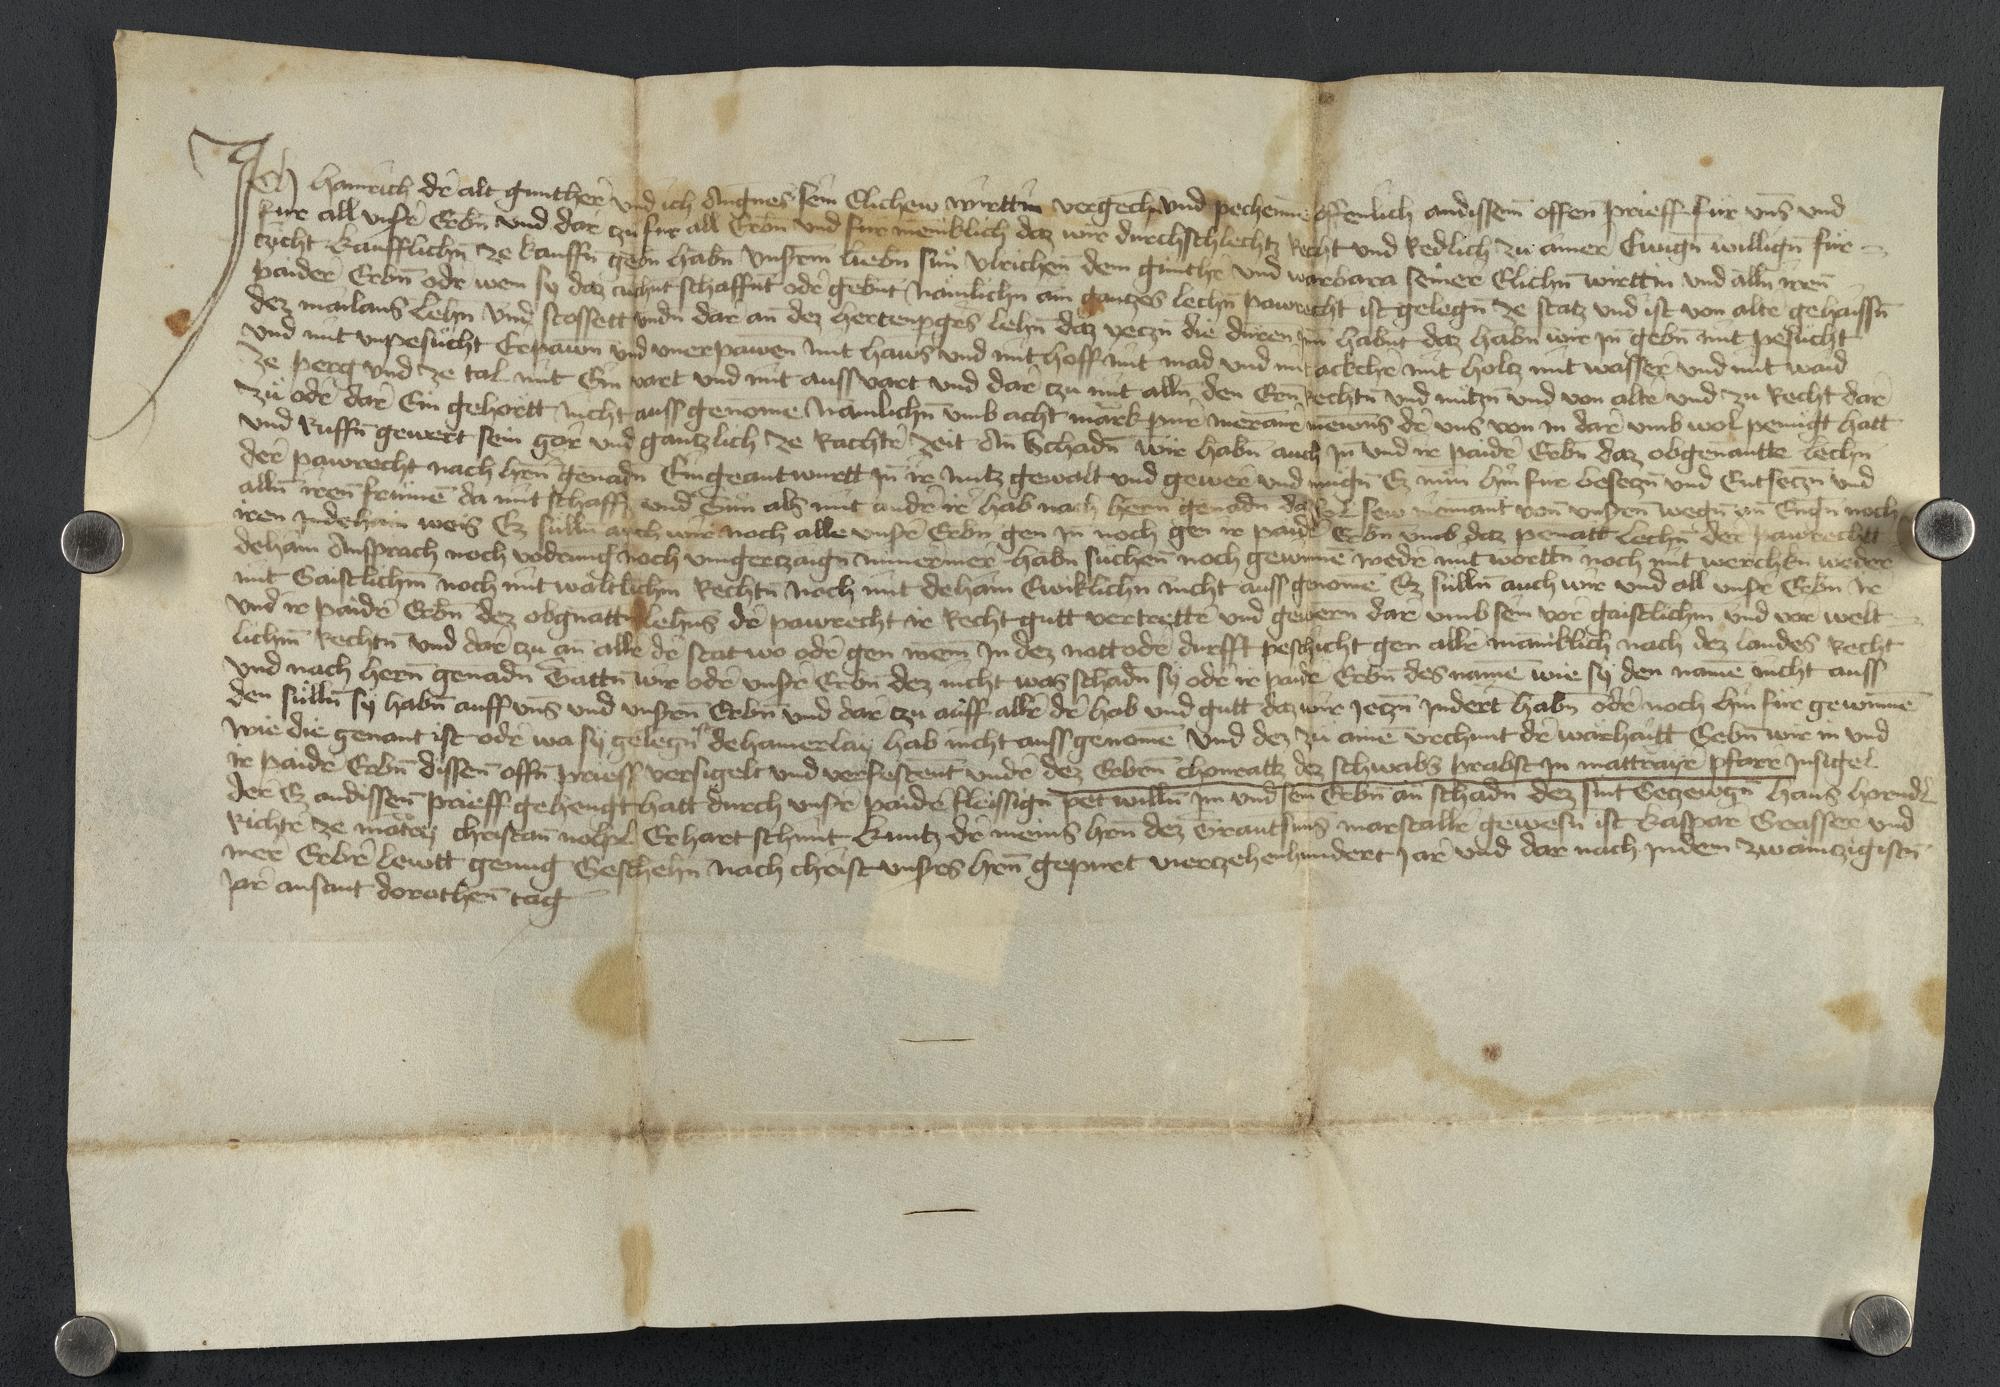 Ich hainreich der alt gunther und ich Angnes sein Elichew wirttin vergechn und pechenne offenlich andissem offen prieff fur uns und
fur all unser Erbn und dar czu fur all Erbn und fur menklich daz wir durchschlechtz Recht und Redlich zu ainer Ewign willign für
czicht kaufflichn ze kauffn gebn habn unsrem liebn sun ulreichen dem gunther und warbara seiner Elichn wirttin und alln iren
paider Erbn oder wem sy daz schaffnt oder gebnt Namlichn ain gantzes lechn pawrecht ist gelegn ze statz und ist von alter gehaissn
dez mairlans lehn und stossett undn dar an dez hertenpges lehn daz yeczn die duren inn habnt daz habn wir in gebn mit pesucht
und mit unpesucht Erpawn und unerpawen mit haws und mit hoff mit mad und mit ackcher mit holtz mit wasser und mit waid
ze perg und ze tal mit Ein vart und mit auss vart und dar czu mit alln den Ern Rechtn und nutzn und von alter und zu Recht dar
zu oder dar Ein gehortt nicht auss genome Namlichn umb acht mark purer meraner der uns von in dar umb wol penugt hatt
und Ruffn gewert sein gar und gantzlich ze Rachter zeit An Schadn wir habn auch in und ir paider Erbn daz obgenantte lechn
der pawrecht nach hern genadn Eingeantwurtt in ir nutz gewalt und gewer und mugn Ez nun hin fur besetzn und Entsetzn und
alln iren frumen da mit schaffn und tun als mit ander ir hab nach hern genadn da sol sew niemant von unsren wegn an Engn noch
iren in dehain weis Ez sulln auch wir noch alle unser Erbn gen in noch gen ir paider Erbn umb daz penantt lechn der pawrechtt
dehain Ansprach noch vodrung noch nimermer habn suchen noch gewinne weder mit worttn noch mit werchkn weder
mit Gaistlichm noch mit waltlichm Rechtn noch mit dehain Ewiklichn nicht auss genome Ez sulln auch wir und all unser Erbn ir
und ir paider Erbn dez obgnattn lehns der pawrecht ir Recht gutt vertretter und gewern dar umb sein vor gaistlichm und vor welt
lichm Rechtn und dar czu an aller der stat wo oder gen wem In dez nott oder durfft peschicht gen aller manklich nach dez landes Recht
und nach hern genadn Tattn wir oder unser Erbn dez nicht was schadn sy oder ir paider Erbn des name wie sy den name nicht auss
den sulln sy habn auff uns und unsren Erbn und dar czu auff aller der hab und gutt daz wir yeczn Indert habn oder noch hin fur gewinne
wie die genant ist oder wa sy gelegn dehainerlay hab nicht auss genome Und dez zu aine urchunt der warhaitt Gebn wir in und
ir paider Erbn dissen offn prieff versigelt und verfestent under dez Erbern chonratz dez schwabs prabst in mattrayr pfarr Insigel
der Ez andissen prieff gehengt hatt durch unser paider fleissign pet willn im und sein Erbn an schadn dez sint Geczewgn hans horndl
Richter ze matrey christan Erhart schmit Cuntz der meins hern dez Grantsms marstaller gewesn ist Kaspar Grasser und
mer Erber lewtt genug Geschehn nach christ unsres hern gepurt vierczehenhundert Jar und dar nach Inden zwaintzigistn
Jar an sant dorothen tag